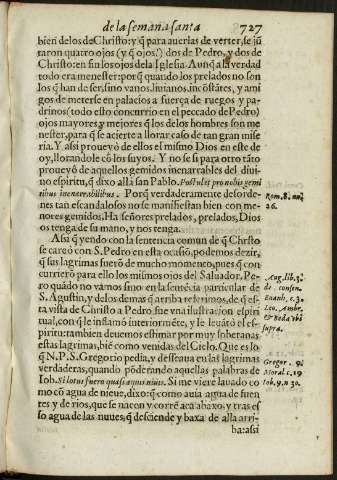 de la semana santa 727
bien delos de Christo: y q̃ para auerlas de verter, se jũ
taron quatro ojos (y q̃ ojos!) dos de Pedro, y dos de
Christo: en fin los ojos de la Iglesia. Aunq̃ a la verdad
todo era menester: porq̃ quando los prelados no son
los q̃ han de ser, sino vanos, liuianos, incõstãtes, y ami
gos de meterse en palacios a fuerça de ruegos y pa-
drinos (todo esto concurrio en el peccado de Pedro)
ojos mayores y mejores q̃ los delos hombres son me
nester, para q̃ se acierte a llorar caso de tan gran mise
ria. Y assi proueyò de ellos el mismo Dios en este de
oy, llorandole cõ los suyos. Y no se si para otro tãto
proueyò de aquellos gemidos inenarrables del diui-
no espiritu, q̃ dixo allà san Pablo. Postulat pro nobis gemi
tibus inenarrabilibus. Porq̃ verdaderamente desorde-
nes tan escandalosos no se manifiestan bien con me-
nores gemidos. Ha señores prelados, prelados, Dios
os tenga de su mano, y nos tenga.
Rom. 8. nu.
26.
Assi q̃ yendo con la sentencia comun de q̃ Christo
se careò con S. Pedro en esta ocasiõ, podemos dezir,
q̃ sus lagrimas fuerõ de mucho momento, pues q̃ con
currierõ para ello los mismos ojos del Saluador. Pe-
ro quãdo no vamos sino en la sentẽcia particular de
S. Agustin, y delos demas q̃ arriba referimos, de q̃ es-
ta vista de Christo a Pedro, fue vna ilustracion espiri
tual, con q̃ le inflamò interiormẽte, y le leuãtò el es-
piritu: tambien deuemos estimar por muy soberanas
estas lagrimas, biẽ como venidas del Cielo. Que es lo
q̃ N. P. S. Gregorio pedia, y desseaua en las lagrimas
verdaderas, quando põderando aquellas palabras de
Iob. Si lotus fuero quasi aquis niuis. Si me viere lauado co
mo cõ agua de nieue, dixo: q̃ como auia agua de fuen
tes y de rios, que se nacen y corrẽ aca abaxo: y tras es
so agua de las nuues, q̃ desciende y baxa de alla arri-
Aug. lib. 3.
de consen.
Euanh. c. 3.
Leo. Ambr.
& Beda vbi
supra.
Gregor. 9.
Moral. c. 19
Iob. 9. n. 30.
ba: assi